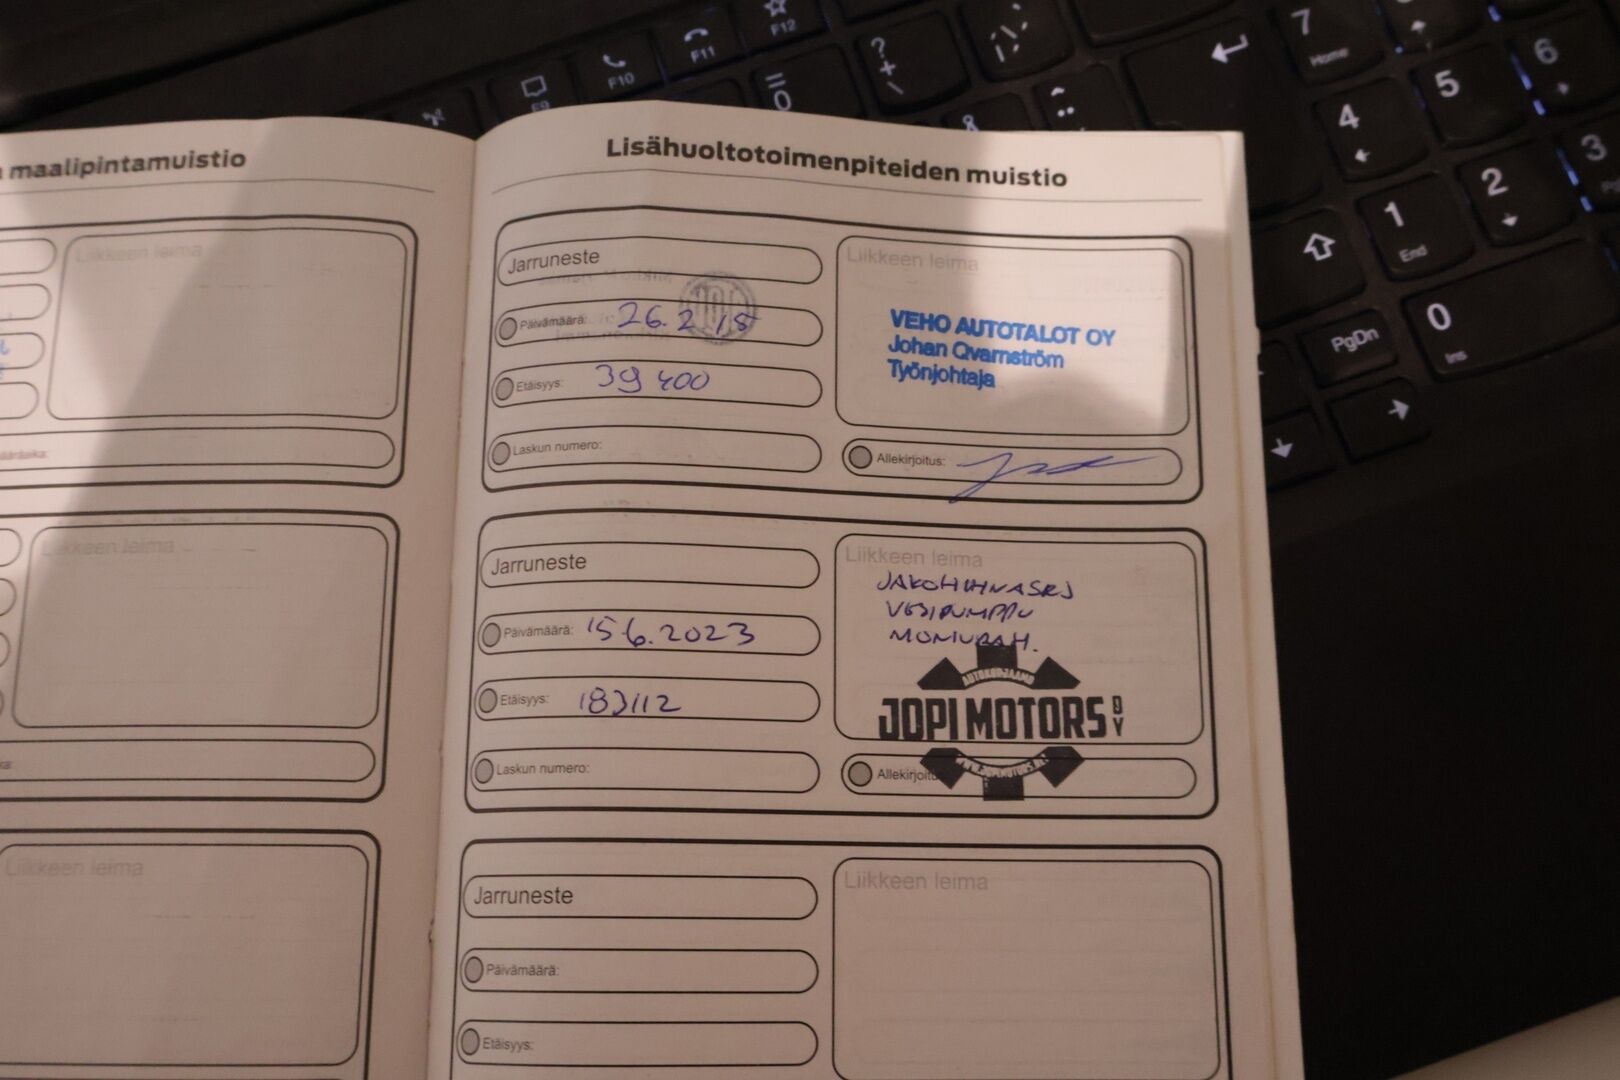 maalipintamuistio
Liikkeen leima
Liikkeen leima
Liikkeen leima
Lisähuoltotoimenpiteiden muistio
Jarruneste
Päivämäärä: 26.2 15
Etäisyys: 39 400
Laskun numero:
Liikkeen leima
VEHO AUTOTALOT OY
Johan Qvarnström
Työnjohtaja
Allekirjoitus:
Jarruneste
Päivämäärä: 15.6.2023
Etäisyys: 183112
Laskun numero:
Liikkeen leima
JAKOHIHNASRJ
VESIPUMPPU
MONIURAH.
AUTOKORJAAMO
JOPI MOTORS OY
WWW.JOPIMOTORS.FI
Allekirjoitu
Jarruneste
Päivämäärä:
Etäisyys:
Liikkeen leima
F9
F10
F11
F12
?
+
\
=
0
7
Home
4
5
6
1
End
2
3
0
Ins
PgDn